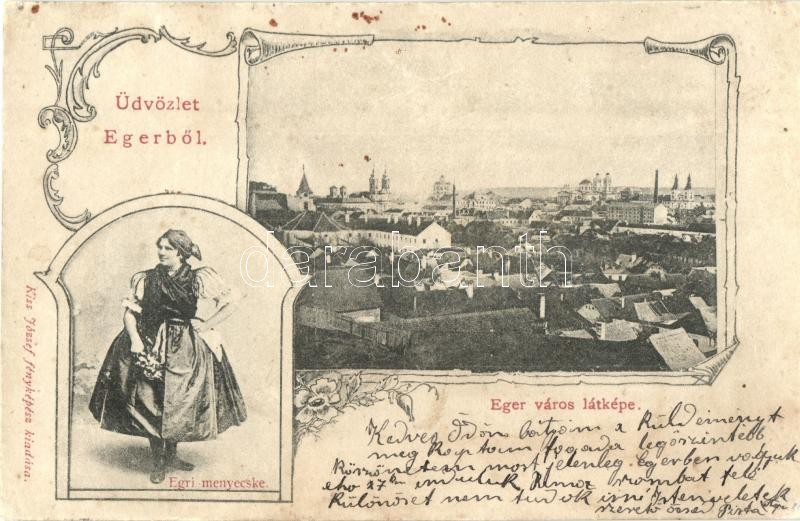 Üdvözlet
Egerből.
Kiss József fényképész kiadása.
Egri menyecske.
Eger város látképe.
darabanth
Kedves Ödön bátyám a küldeményt
meg kaptam fogadja legőszintébb
köszönetem most jelenleg Egerben vagyunk
27 indulunk szombat felé
Különöset nem tudok írni Isten veletek
szerető öcséd Pista